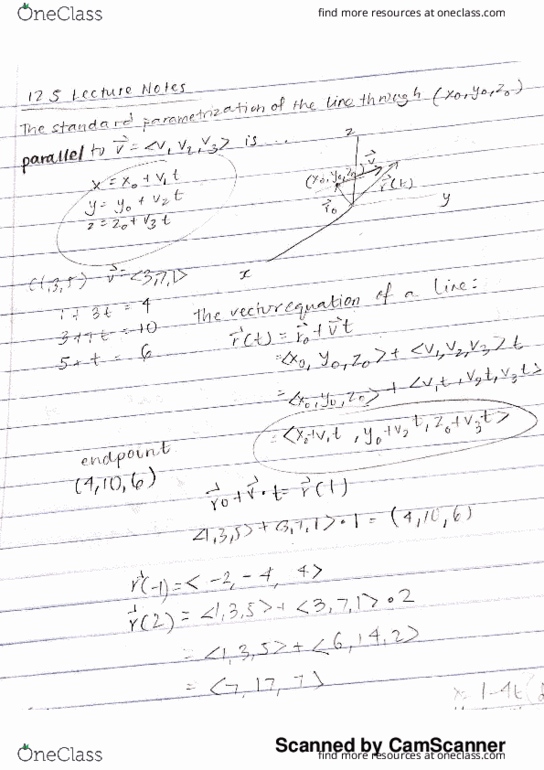 OneClass
find more resources at oneclass.com
12.5 Lecture Notes
The standard parametrization of the line through (x₀,y₀,z₀)
parallel to v⃗ = <v₁, v₂, v₃> is ...
x = x₀ + v₁t
y = y₀ + v₂t
z = z₀ + v₃t
z
(x₀,y₀,z₀)
v⃗
r⃗(t)
r⃗₀
y
x
(1,3,5) v⃗ = <3,7,1>
1 + 3t = 4
3 + 7t = 10
5 + t = 6
The vector equation of a line:
r⃗(t) = r⃗₀ + v⃗t
= <x₀, y₀, z₀> + <v₁, v₂, v₃> t
= <x₀, y₀, z₀> + <v₁t, v₂t, v₃t>
= <x₀+v₁t, y₀+v₂t, z₀+v₃t>
endpoint
(4,10,6)
r⃗₀ + v⃗ · t = r⃗(t)
<1,3,5> + <3,7,1> · 1 = (4,10,6)
r⃗(-1) = < -2, -4, 4>
r⃗(2) = <1,3,5> + <3,7,1> · 2
= <1,3,5> + <6,14,2>
= <7, 17, 7>
x = 1-4t
Scanned by CamScanner
OneClass
find more resources at oneclass.com